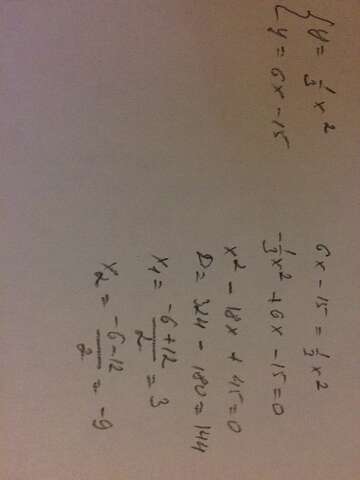 { y = 1/3 x²
y = 6x - 15
6x - 15 = 1/3 x²
-1/3 x² + 6x - 15 = 0
x² - 18x + 45 = 0
D = 324 - 180 = 144
x₁ = (-6 + 12)/2 = 3
x₂ = (-6 - 12)/2 = -9